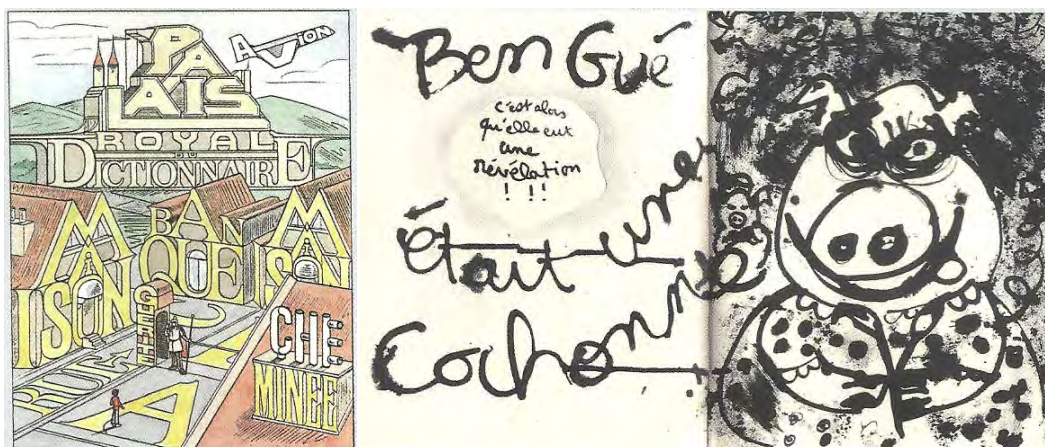 PA
LAIS
AVION
ROYAL
DU
DICTIONNAIRE
MA
ISON
BAN
QUE
MAISON
CHE
MINEE
Ben Gué
c'est alors
qu'elle eut
une
révélation
! !!
Était une
Cochonne